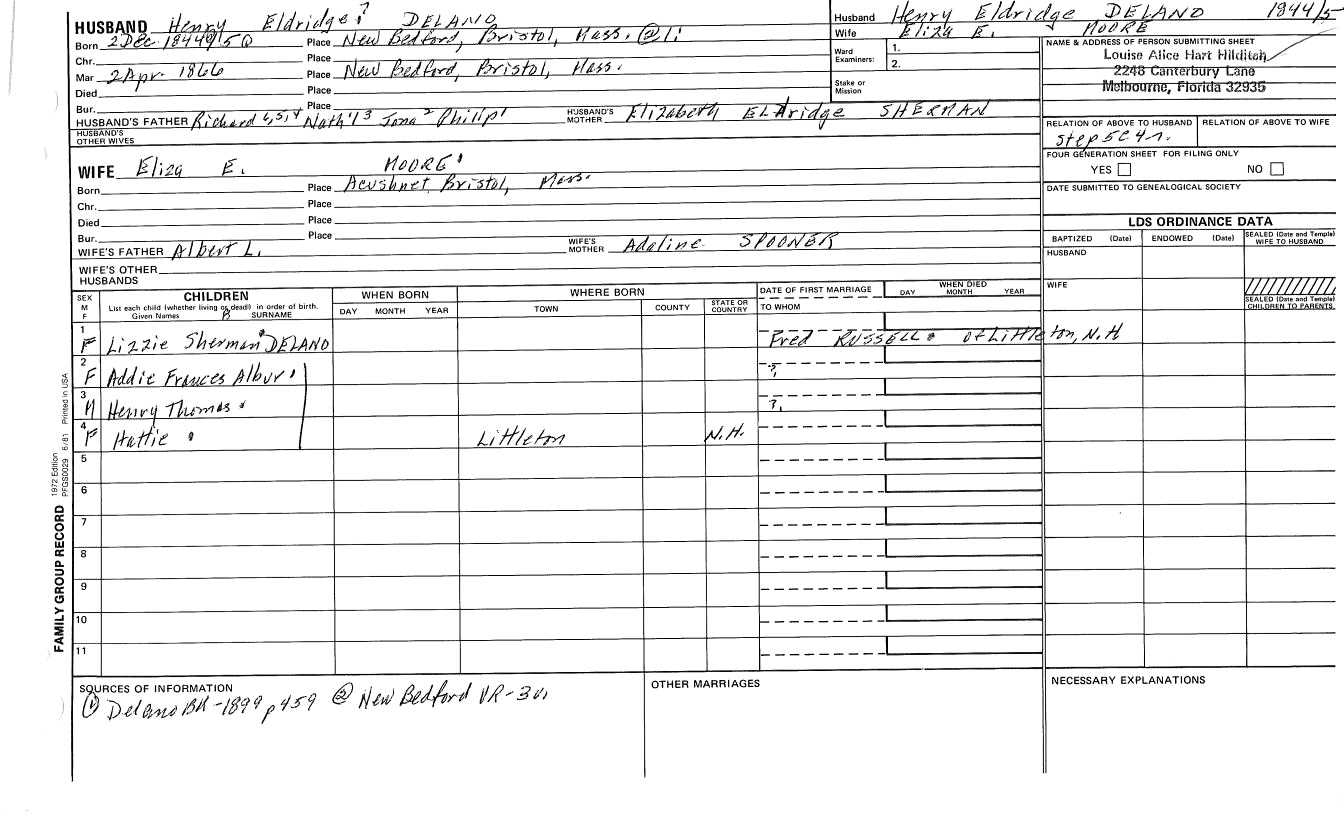 HUSBAND Henry Eldridge? DELANO
Born 2 Dec 1844/5 Place New Bedford, Bristol, Mass. @1:
Chr. Place
Mar 2 Apr. 1866 Place New Bedford, Bristol, Mass.
Died Place
Bur. Place
HUSBAND'S FATHER Richard 6,5,4 Nath'l 3 Jona 2 Philip' HUSBAND'S MOTHER Elizabeth ELdridge SHERMAN
HUSBAND'S OTHER WIVES
Husband Henry Eldridge DELANO 1844/5
Wife Eliza E. MOORE
Ward Examiners: 1.
2.
Stake or Mission
NAME & ADDRESS OF PERSON SUBMITTING SHEET
Louise Alice Hart Hilditch
2248 Canterbury Lane
Melbourne, Florida 32935
RELATION OF ABOVE TO HUSBAND RELATION OF ABOVE TO WIFE
step5C4r.
FOUR GENERATION SHEET FOR FILING ONLY
YES NO
DATE SUBMITTED TO GENEALOGICAL SOCIETY
WIFE Eliza E. MOORE'
Born Place Acushnet, Bristol, Mass.
Chr. Place
Died Place
Bur. Place
WIFE'S FATHER Albert L. WIFE'S MOTHER Adaline SPOONER
WIFE'S OTHER HUSBANDS
LDS ORDINANCE DATA
BAPTIZED (Date) ENDOWED (Date) SEALED (Date and Temple) WIFE TO HUSBAND
HUSBAND
WIFE
SEALED (Date and Temple) CHILDREN TO PARENTS
SEX M F
CHILDREN
List each child (whether living or dead) in order of birth.
Given Names SURNAME
WHEN BORN
DAY MONTH YEAR
WHERE BORN
TOWN COUNTY STATE OR COUNTRY
DATE OF FIRST MARRIAGE
TO WHOM
WHEN DIED
DAY MONTH YEAR
1 F Lizzie Sherman DELANO Fred RUSSELL of Littleton, N.H
2 F Addie Frances Albur ?,
3 M Henry Thomas ?,
4 F Hattie Littleton N.H.
5
6
7
8
9
10
11
FAMILY GROUP RECORD 1972 Edition PFGS0029 6/81 Printed in USA
SOURCES OF INFORMATION
① Delano BK-1899 p459 @ New Bedford VR-3v.
OTHER MARRIAGES
NECESSARY EXPLANATIONS